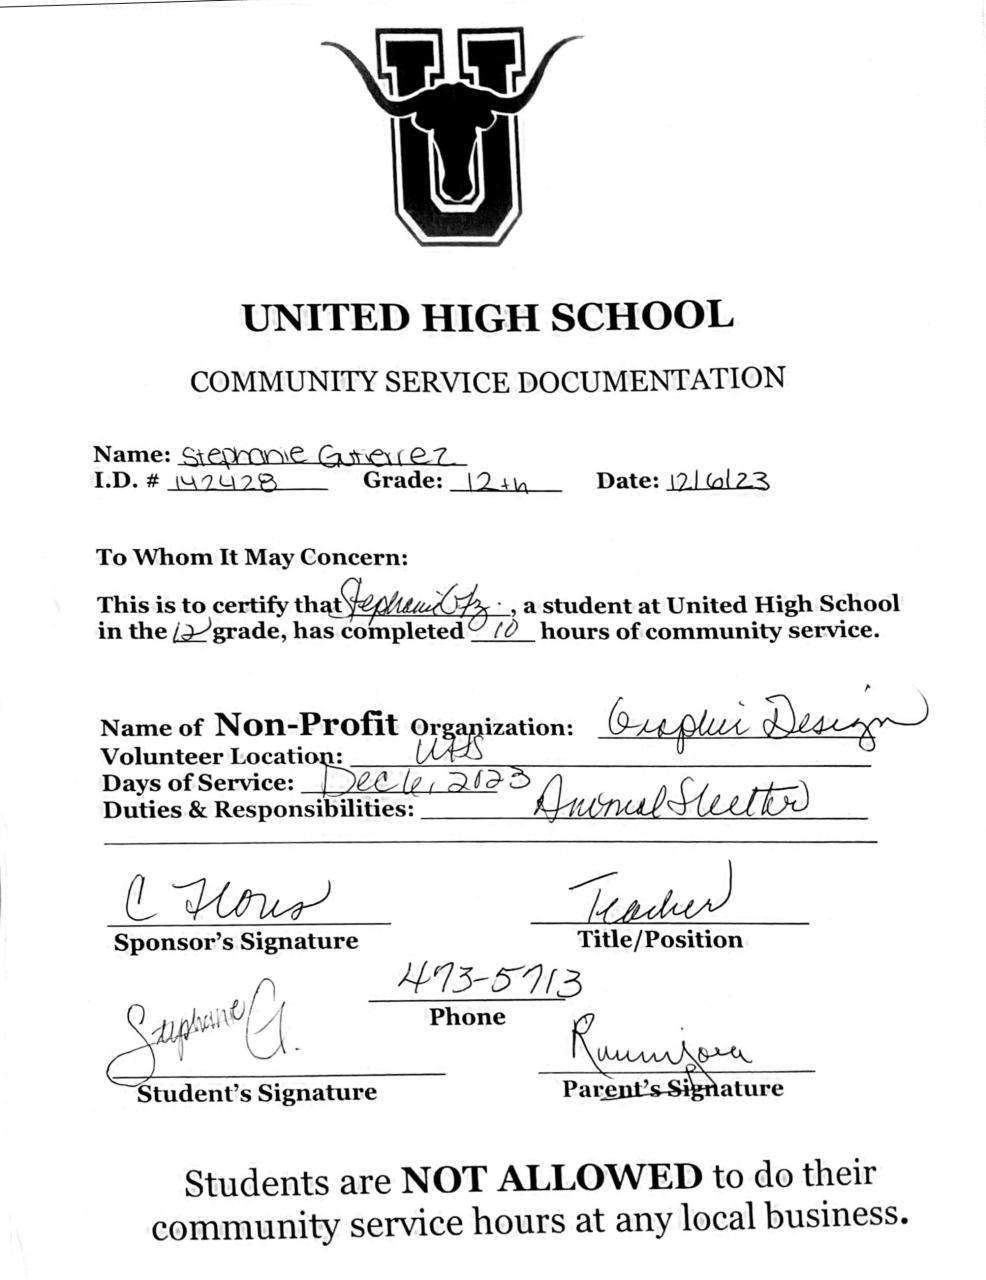 U
UNITED HIGH SCHOOL
COMMUNITY SERVICE DOCUMENTATION
Name: Stephanie Gutierrez
I.D. # 142428 Grade: 12th Date: 12/6/23
To Whom It May Concern:
This is to certify that Stephanie Gtz., a student at United High School
in the 12 grade, has completed 10 hours of community service.
Name of Non-Profit Organization: Graphic Design
Volunteer Location: UHS
Days of Service: Dec 6, 2023
Duties & Responsibilities: Animal Shelter
C Flores Teacher
Sponsor's Signature Title/Position
473-5713
Phone
Stephanie G.
Student's Signature Parent's Signature
Students are NOT ALLOWED to do their
community service hours at any local business.